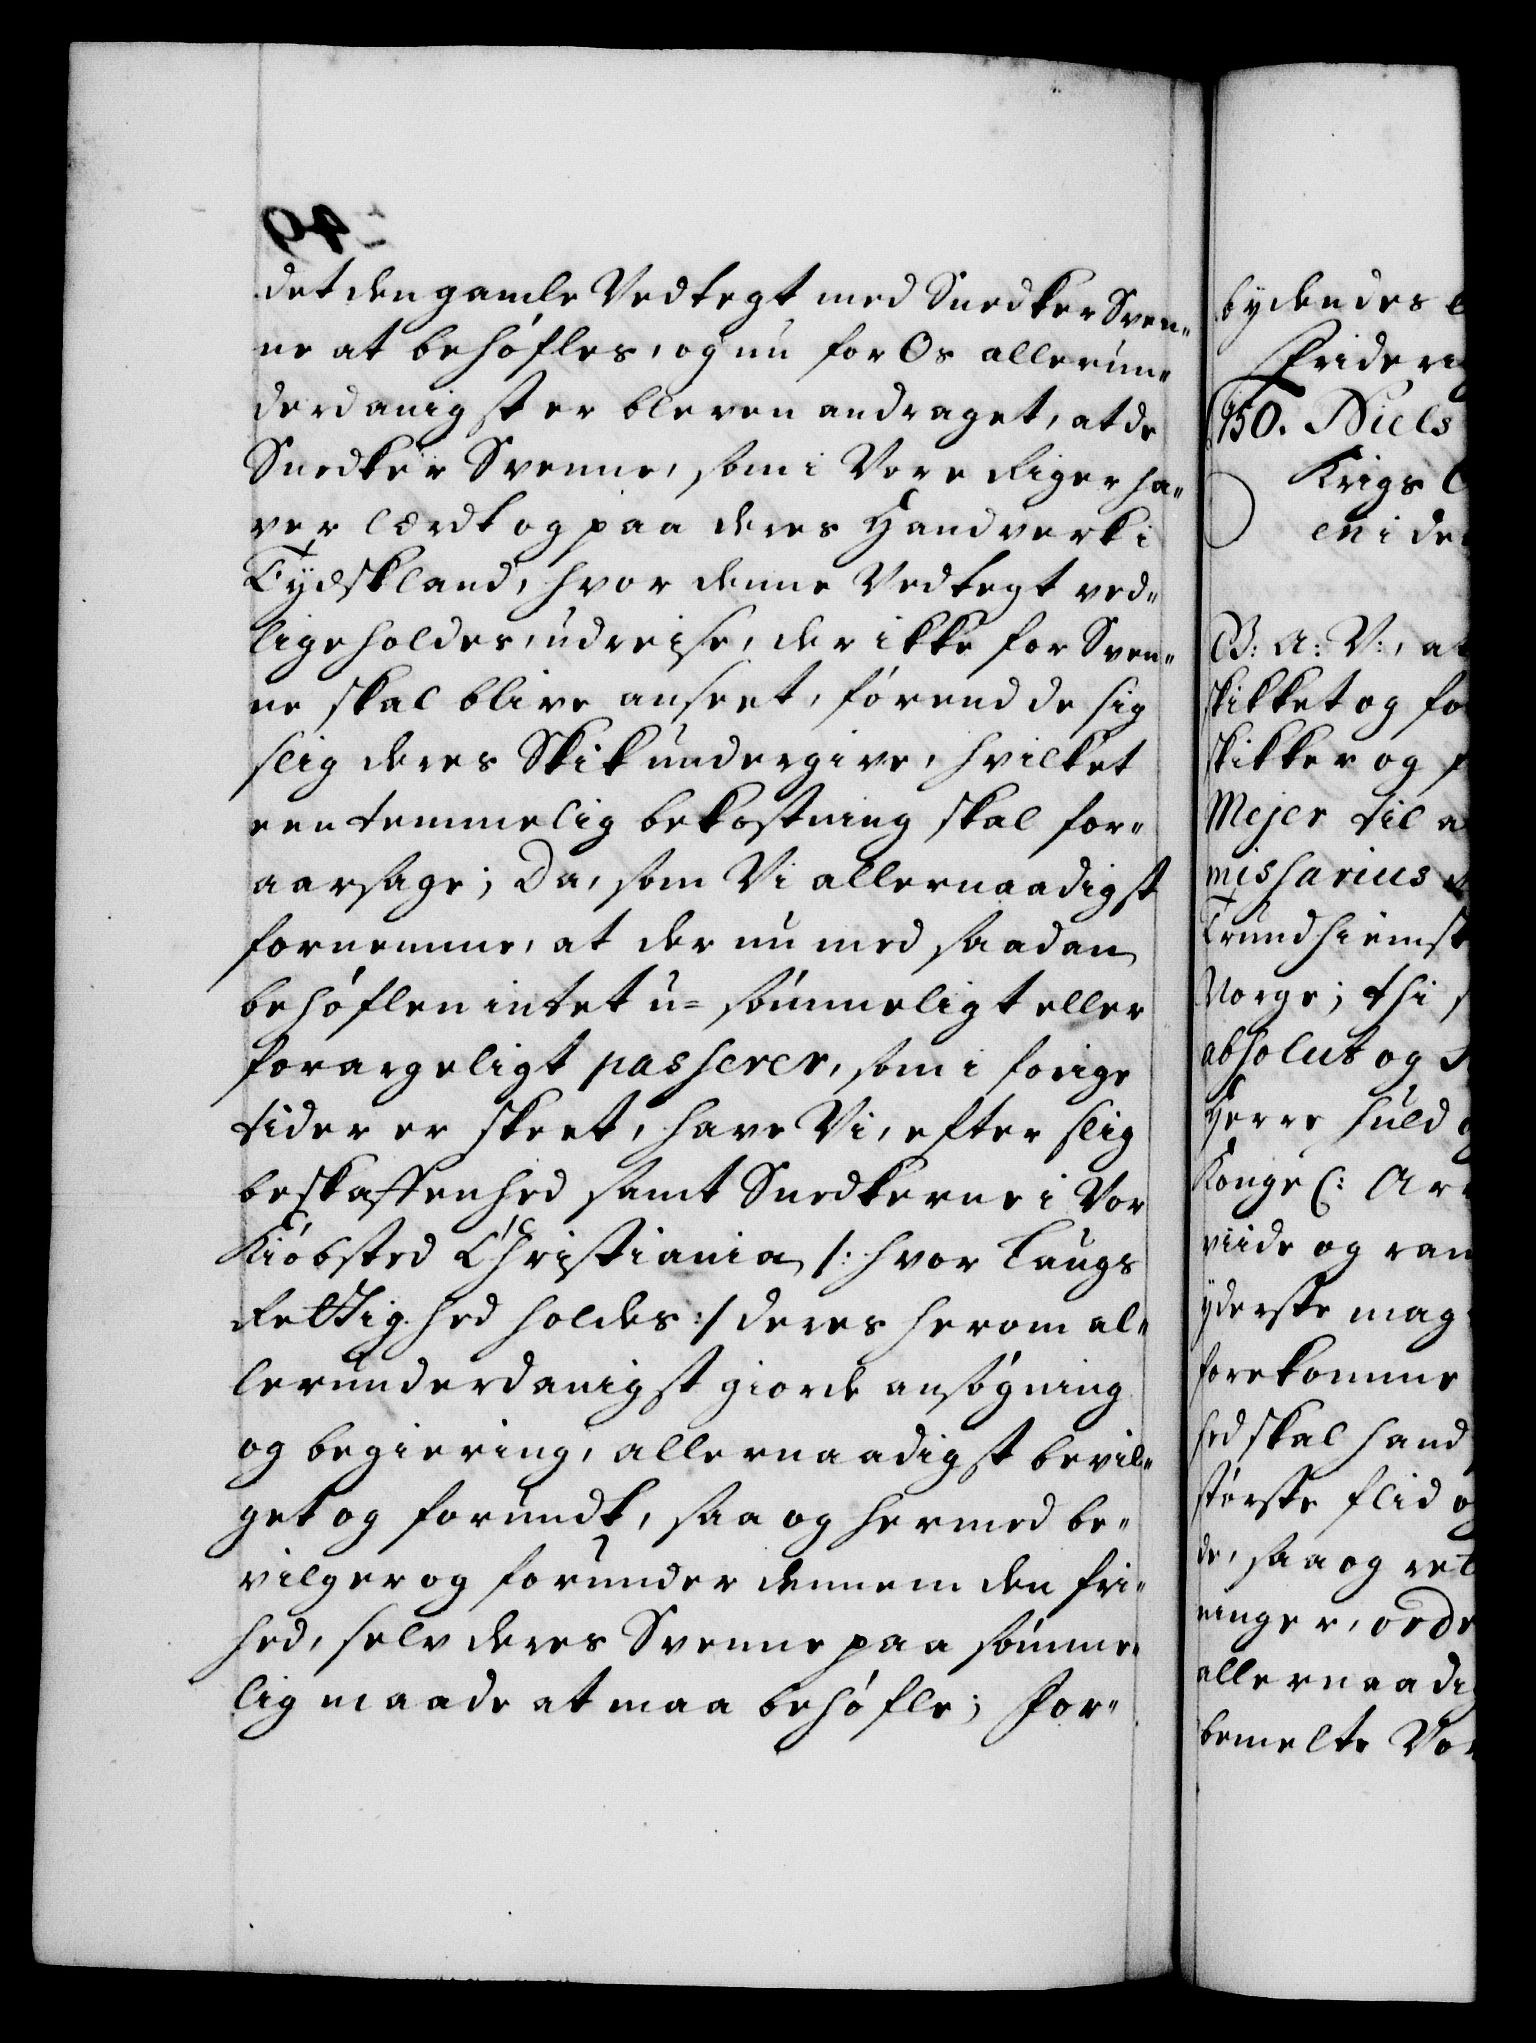 det den gamle Vedtegt med Snedker Sven-
ne at behøfles, og nu for Os allerun-
derdanigst er bleven andraget, at de
Snedker Svenne, som i Vore Riger ha-
ver lærdt og paa deres Handverk i
Tydskland, hvor denne Vedtegt ved-
ligeholdes, udreise, der ikke for Sven-
ne skal blive anseet, førend de sig
slig deres Skik undergive, hvilket
een temmelig bekostning skal for-
aarsage; Da, som Vi allernaadigst
fornemme, at der nu med saadan
behøflen intet u- sømmeligt eller
forargeligt passerer, som i forige
tider er skeet, have Vi, efter slig
beskaffenhed samt Snedkerne i Vor
Kiøbsted Christiania /: hvor Laugs
Rettighed holdes :/ deres herom al-
lerunderdanigst giorde ansøgning
og begiering, allernaadigst bevil-
get og forundt, saa og hermed be-
vilger og forunder dennem den fri-
hed, selv deres Svenne paa sømme-
lig maade at maa behøfle; For-
bydendes
Frideri
150. Niels
Krigs
en i de
B: A: V:, at
skikket og fo
skikker og f
Mejer til a
missarius
Trundhiemsk
Norge; thi s
absolut og
Herre huld
Konge C: Ar
viide og ram
yderste mag
forekomme
hed skal hand
største flid og
de, saa og ret
ninger, orde
allernaadig
bemelte Vor